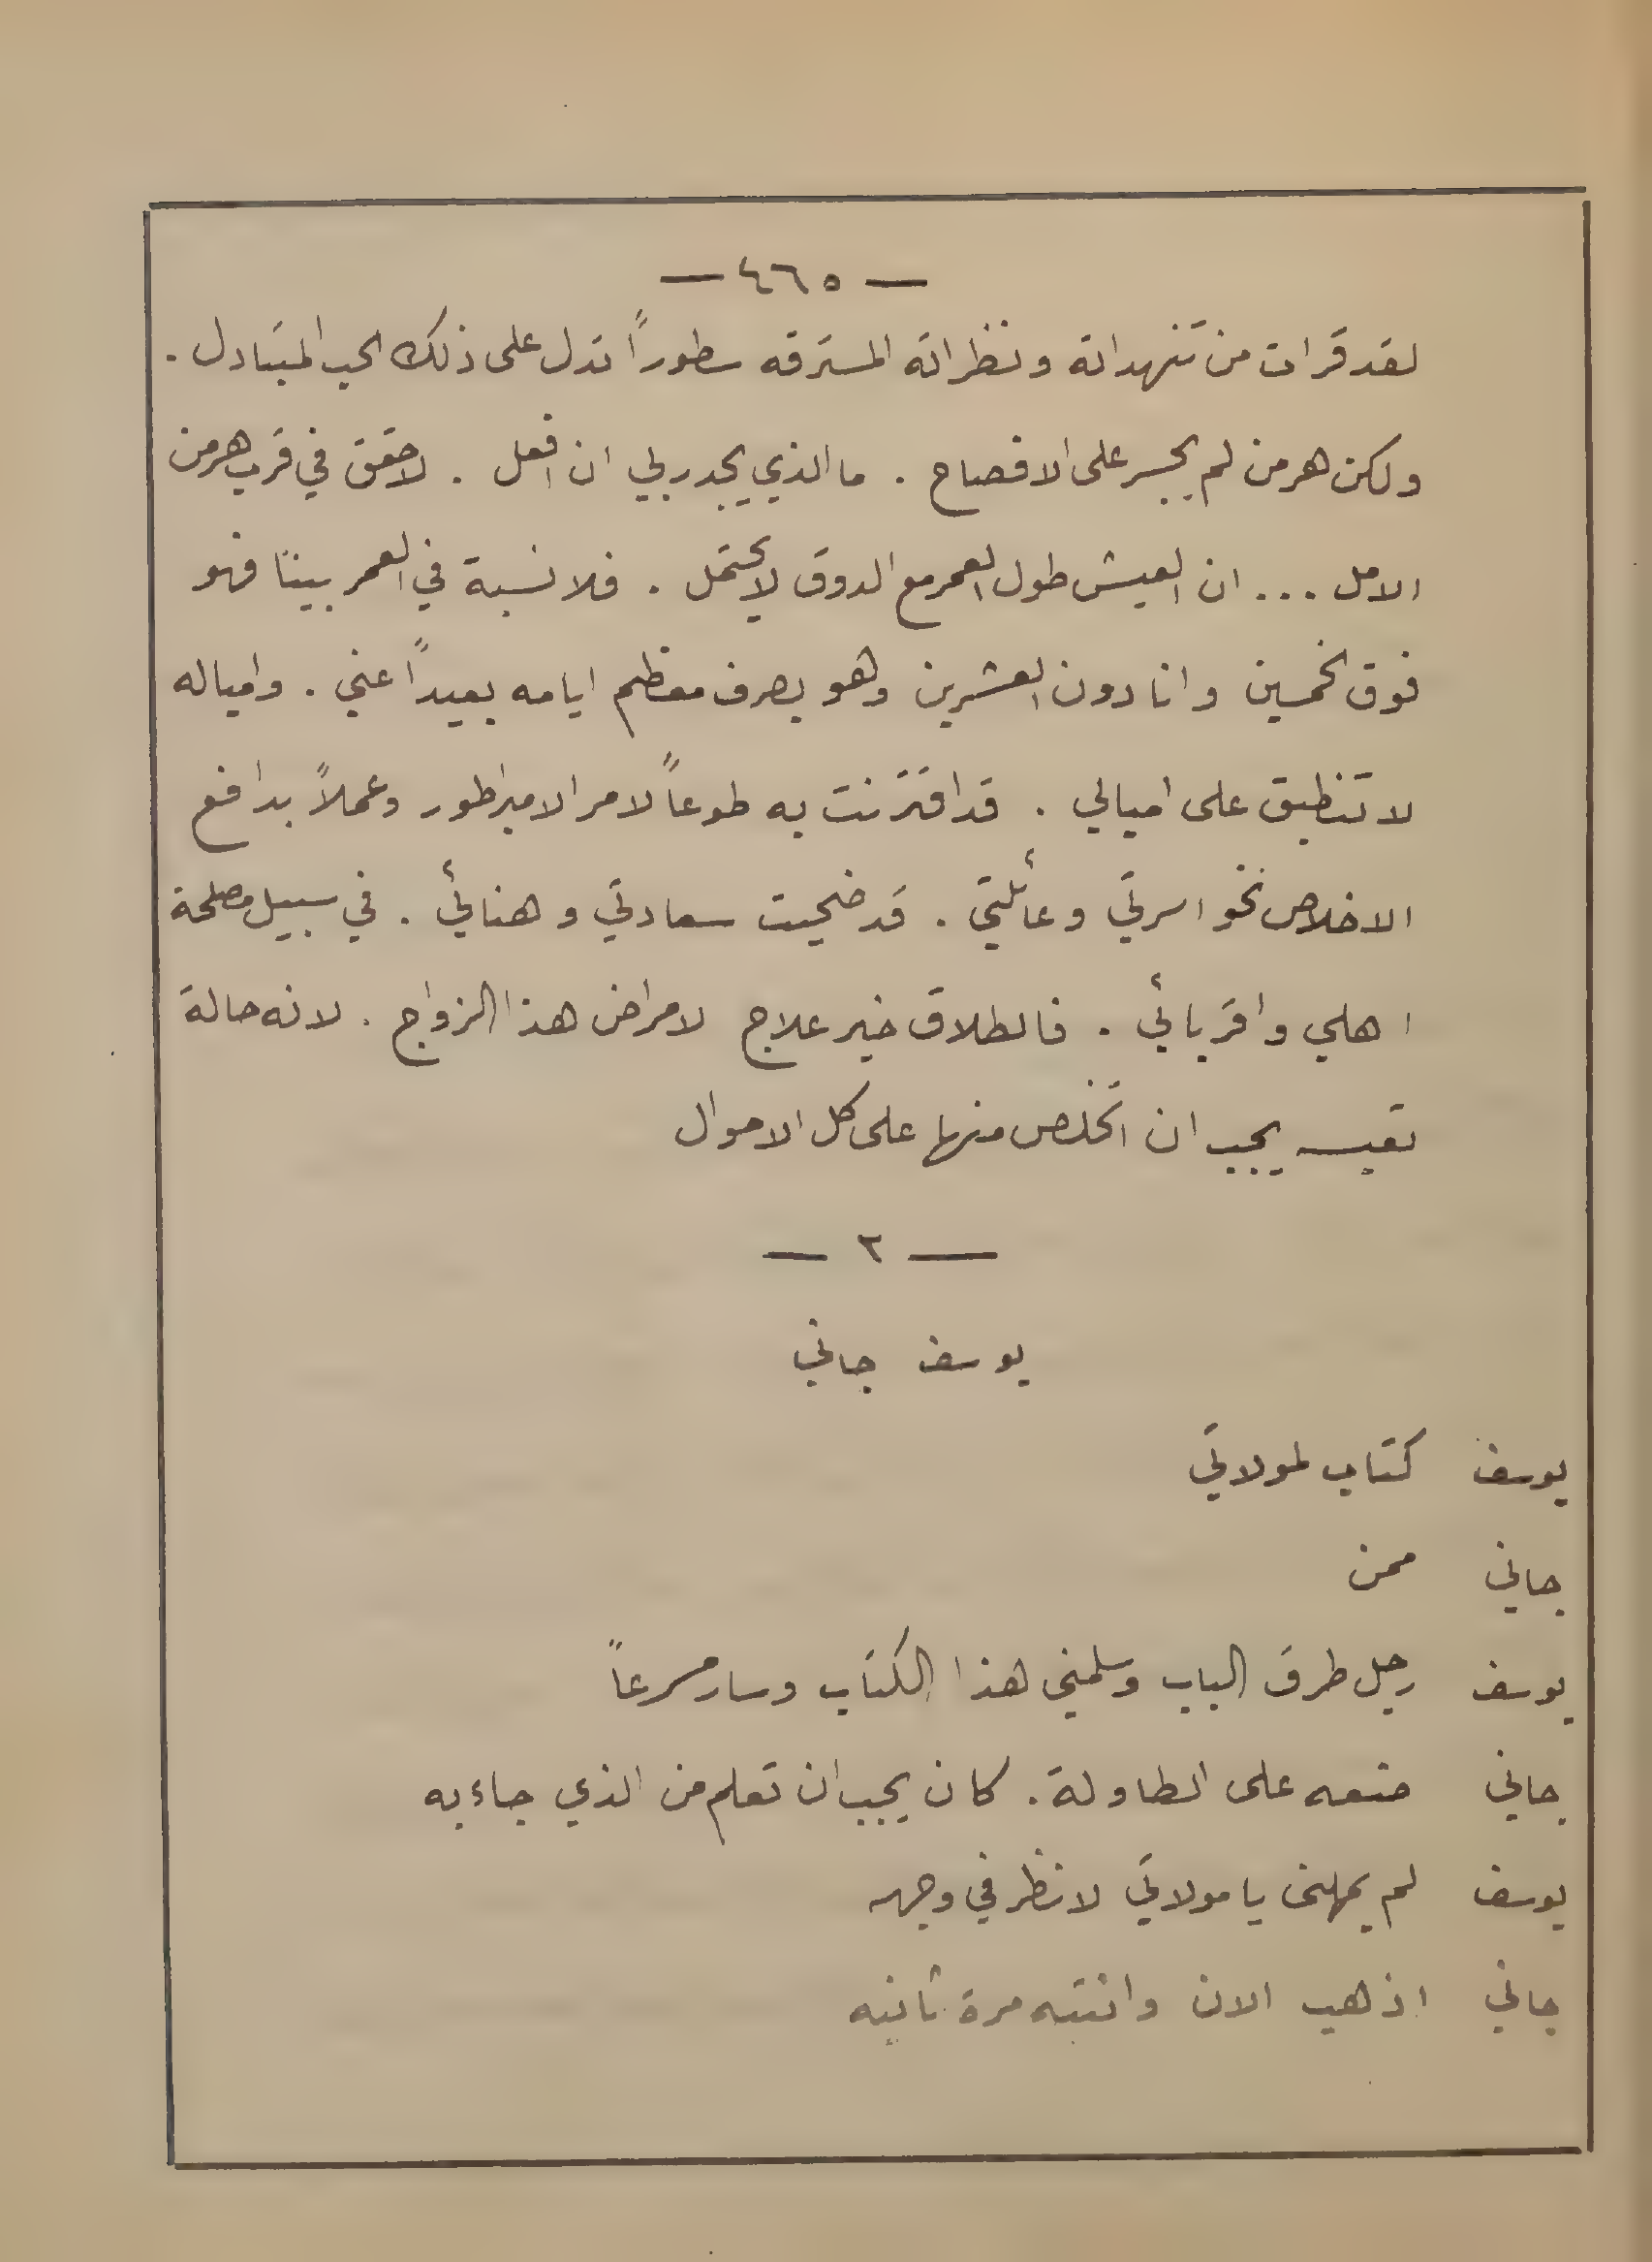 — ٤٦٥ —
لقد قرات من تنهداته ونظراته المسترقه سطوراً تدل على ذلك الحب المتبادل .
ولكن هرمن لم يجسر على الافصاح . ما الذي يجدر بي ان افعل . لاحقق في قرب هرمن
الامل ... ان العيش طول العمر مع الدوق لا يحتمل . فلا نسبة في العمر بيننا فهو
فوق الخمسين وانا دون العشرين وهو يصرف معظم ايامه بعيداً عني . وامياله
لا تنطبق على اميالي . قد اقترنت به طوعاً لامر الامبراطور وعملاً بدافع
الاخلاص نحو اسرتي وعائلتي . قد ضحيت سعادتي وهنائي . في سبيل مصلحة
اهلي واقربائي . فالطلاق خير علاج لامراض هذا الزواج . لانه حالة
تعيسه يجب ان اتخلص منها على كل الاحوال
— ٢ —
يوسف جاني
يوسف كتاب لمولاتي
جاني ممن
يوسف رجل طرق الباب وسلمني هذا الكتاب وسار مسرعاً
جاني ضعه على الطاولة . كان يجب ان تعلم من الذي جاء به
يوسف لم يمهلني يا مولاتي لانظر في وجهه
جاني اذهب الان وانتبه مرة ثانيه